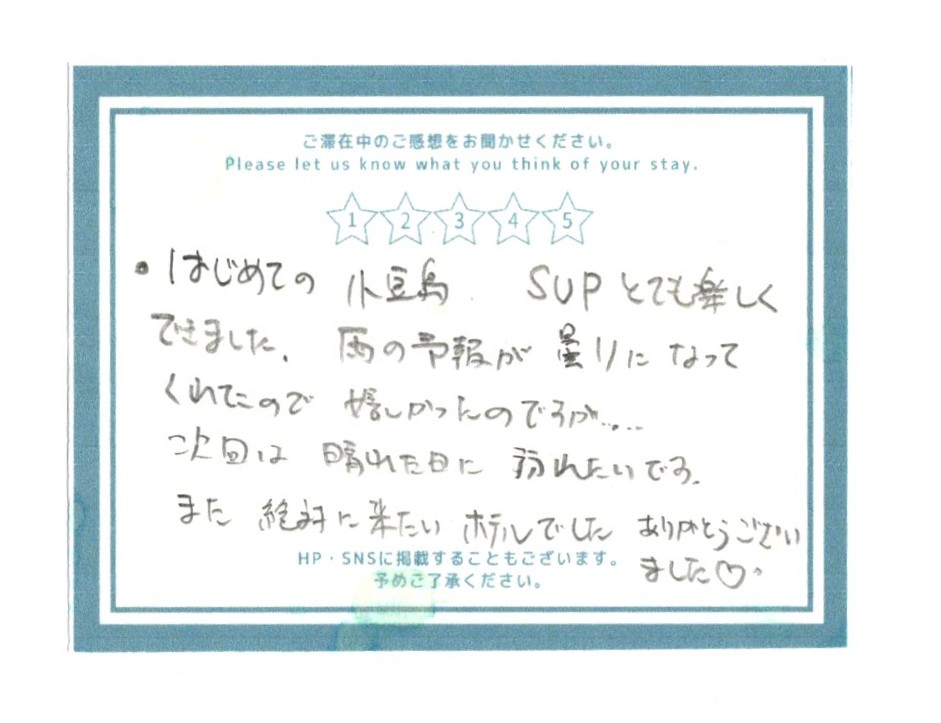 ご滞在中のご感想をお聞かせください。
Please let us know what you think of your stay.
1 2 3 4 5
・はじめての 小豆島. SUPとても楽しく
できました. 雨の予報が 曇りに なって
くれてたので 嬉しかったのですが.....
次回は 晴れた日に 訪れたいです.
また 絶対に 来たい ホテルでした ありがとうござい
ました♡。
HP・SNSに掲載することもございます。
予めご了承ください。